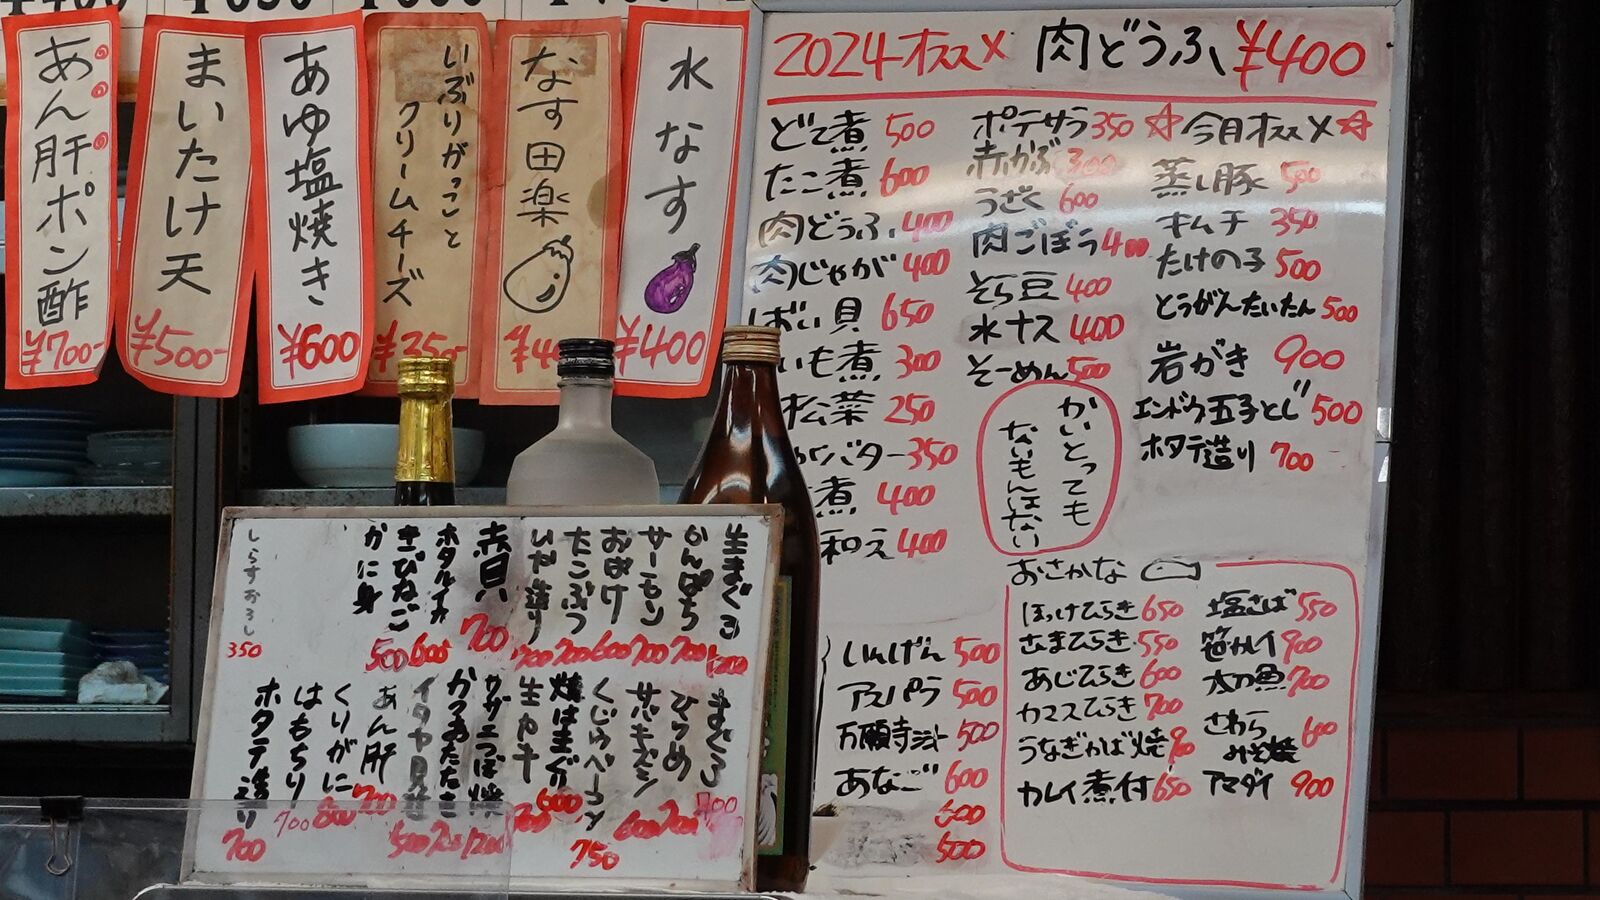 あん肝ポン酢
¥700-
まいたけ天
¥500-
あゆ塩焼き
¥600
いぶりがっこと
クリームチーズ
¥350-
なす田楽
水なす
¥400
2024オススメ 肉どうふ ¥400
どて煮 500
たこ煮 600
肉どうふ 400
肉じゃが 400
ばい貝 650
いも煮 300
松葉 250
バター 350
煮 400
和え 400
ポテサラ 350
赤かぶ 300
うざく 600
肉ごぼう 400
そら豆 400
水ナス 400
そーめん 500
かいとっても
ないもんはない
☆今月オススメ☆
蒸し豚 500
キムチ 350
たけの子 500
とうがんたいたん 500
岩がき 900
エンドウ玉子とじ 500
ホタテ造り 700
いんげん 500
アスパラ 500
万願寺 500
あなご 600
600
500
おさかな
ほっけひらき 650
さまひらき 550
あじひらき 600
カマスひらき 700
うなぎかば焼
カレイ煮付 650
塩さば 550
笹カレイ 900
太刀魚 700
さわら
みそ焼 600
アマダイ 900
生まぐろ
かんぱち 700
サーモン 700
おばけ 600
たこぶつ 700
いか造り
赤貝 700
ホタルイカ 600
きびなご 500
かに身
しらすおろし 350
まぐろ
ひらめ
くじらベーコン 750
焼はまぐり 600
生カキ
サザエつぼ焼
かつおたたき
あん肝 700
くりがに 800
はもちり 700
ホタテ造り 700